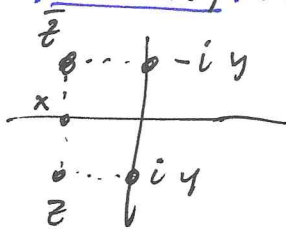 z̄
- i y
x
i y
z